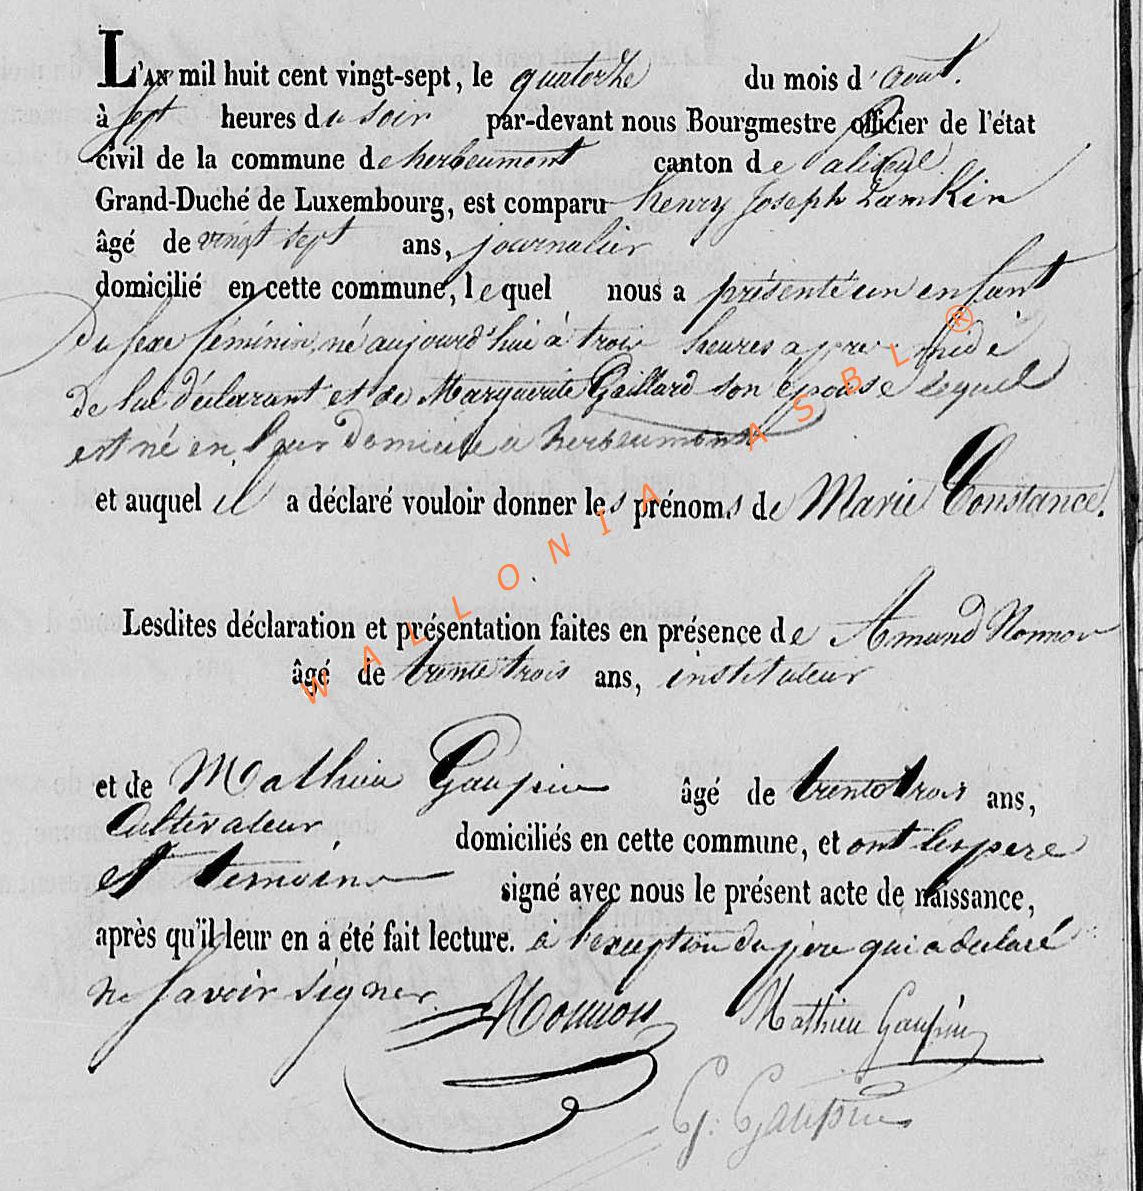 L'AN mil huit cent vingt-sept, le quatorze du mois d'aout.
à sept heures du soir par-devant nous Bourgmestre officier de l'état
civil de la commune de herbeumont canton de paliseul
Grand-Duché de Luxembourg, est comparu henry Joseph Lamkin
âgé de vingt sept ans, journalier
domicilié en cette commune, lequel nous a présenté un enfant
du sexe féminin, né aujourd'hui à trois heures apre midi
de lui déclarant et de Marguerite Gaillard son épouse lequel
est né en leur domicile a herbeumont
et auquel il a déclaré vouloir donner les prénoms de Marie Constance.
Lesdites déclaration et présentation faites en présence de Amand Monnon
âgé de trente trois ans, instituteur
et de Mathieu Gaupin âgé de trente trois ans,
Cultivateur domiciliés en cette commune, et ont les pere
et temoins signé avec nous le présent acte de naissance,
après qu'il leur en a été fait lecture. a l'exception du père qui a déclaré
ne savoir signer.
Monnon Mathieu Gaupin
G. Gaupin
WALLONIA ASBL ®